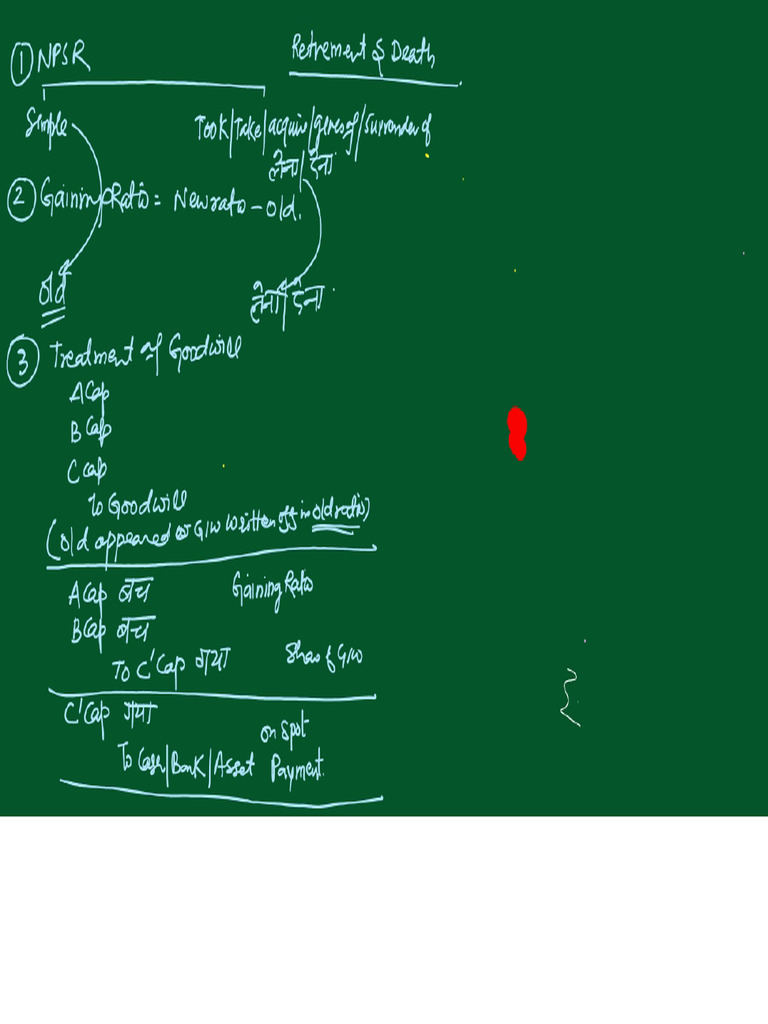 ① NPSR
Retirement & Death
Simple
Took/Take/acquire/given of/Surrender of
लेना/देना
② Gaining Ratio = New ratio - old.
Old
लेना/देना
③ Treatment of Goodwill
A Cap
B Cap
C Cap
To Goodwill
(Old appeared G/W written off in old ratio)
A Cap बच Gaining Ratio
B Cap बच
To C' Cap गया Share of G/W
C' Cap गया
on spot
To Cash/Bank/Asset Payment.